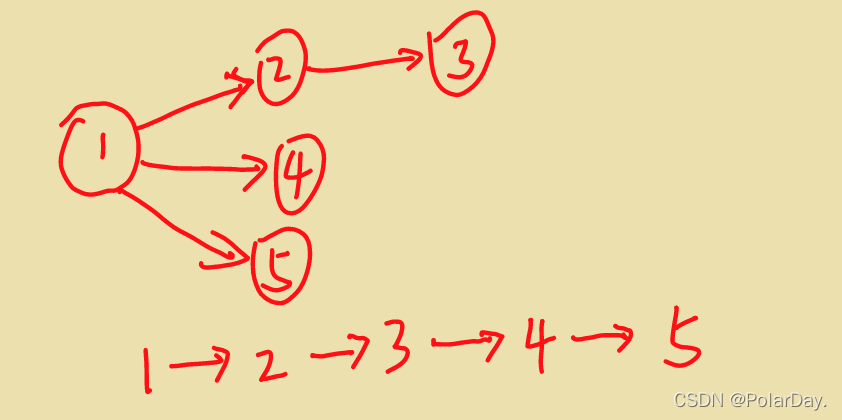 2
3
1
4
5
1 → 2 → 3 → 4 → 5
CSDN @PolarDay.